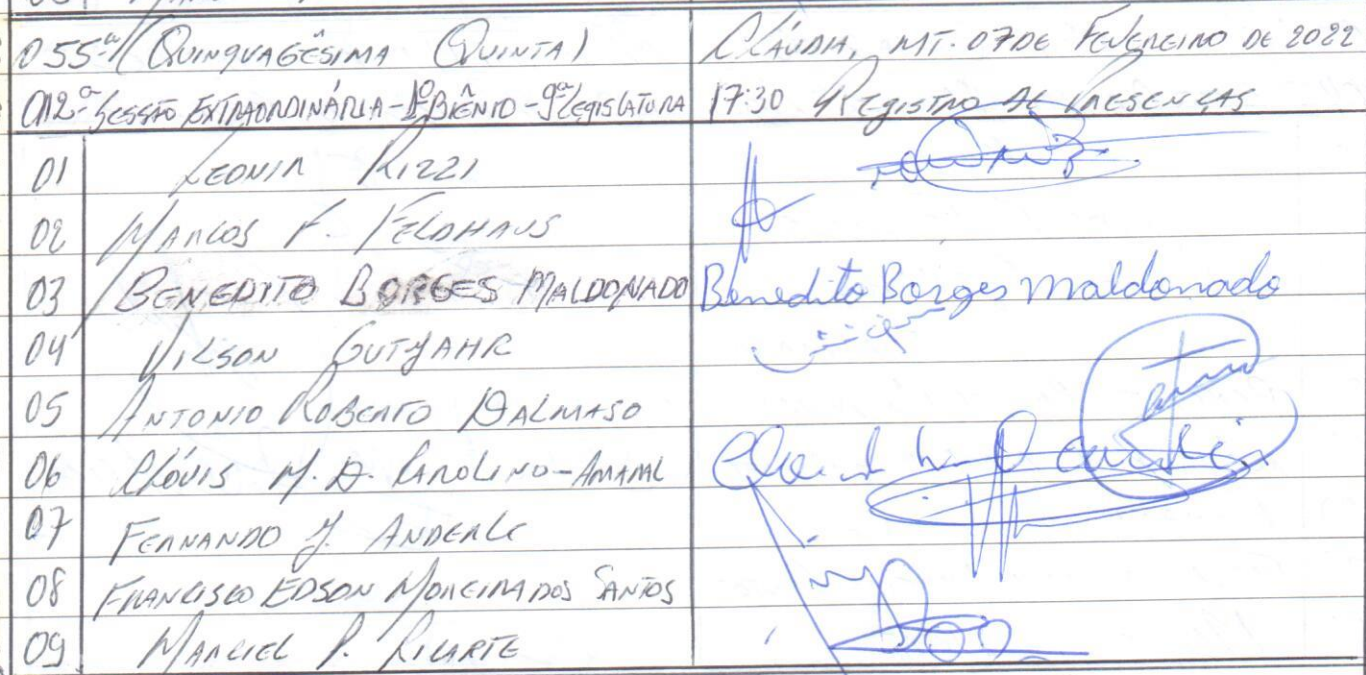 055ª (QUINQUAGÊSIMA QUINTA) CLÁUDIA, MT. 07 DE FEVEREIRO DE 2022
012ª SESSÃO EXTRAORDINÁRIA - 1º BIÊNIO - 9ª LEGISLATURA 17:30 REGISTRO DE PRESENÇAS
01 LEONIR RIZZI
02 MARCOS F. FELDHAUS
03 BENEDITO BORGES MALDONADO Benedito Borges Maldonado
04 VILSON GUTJAHR
05 ANTONIO ROBERTO DALMASO
06 CLÓVIS M. D. CAROLINO - AMARAL
07 FERNANDO J. ANDERLE
08 FRANCISCO EDSON MOREIRA DOS SANTOS
09 MARCIEL P. RICARTE